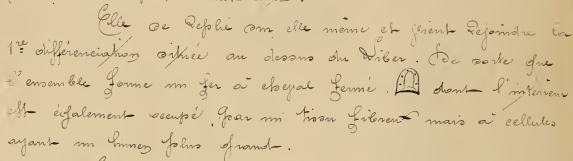 Elle se replie sur elle même et vient rejoindre la
1re différenciation située au dessus du liber. De sorte que
l'ensemble forme un fer à cheval fermé. dont l'intérieur
est également occupé par un tissu fibreux mais à cellules
ayant un lumen plus grand.